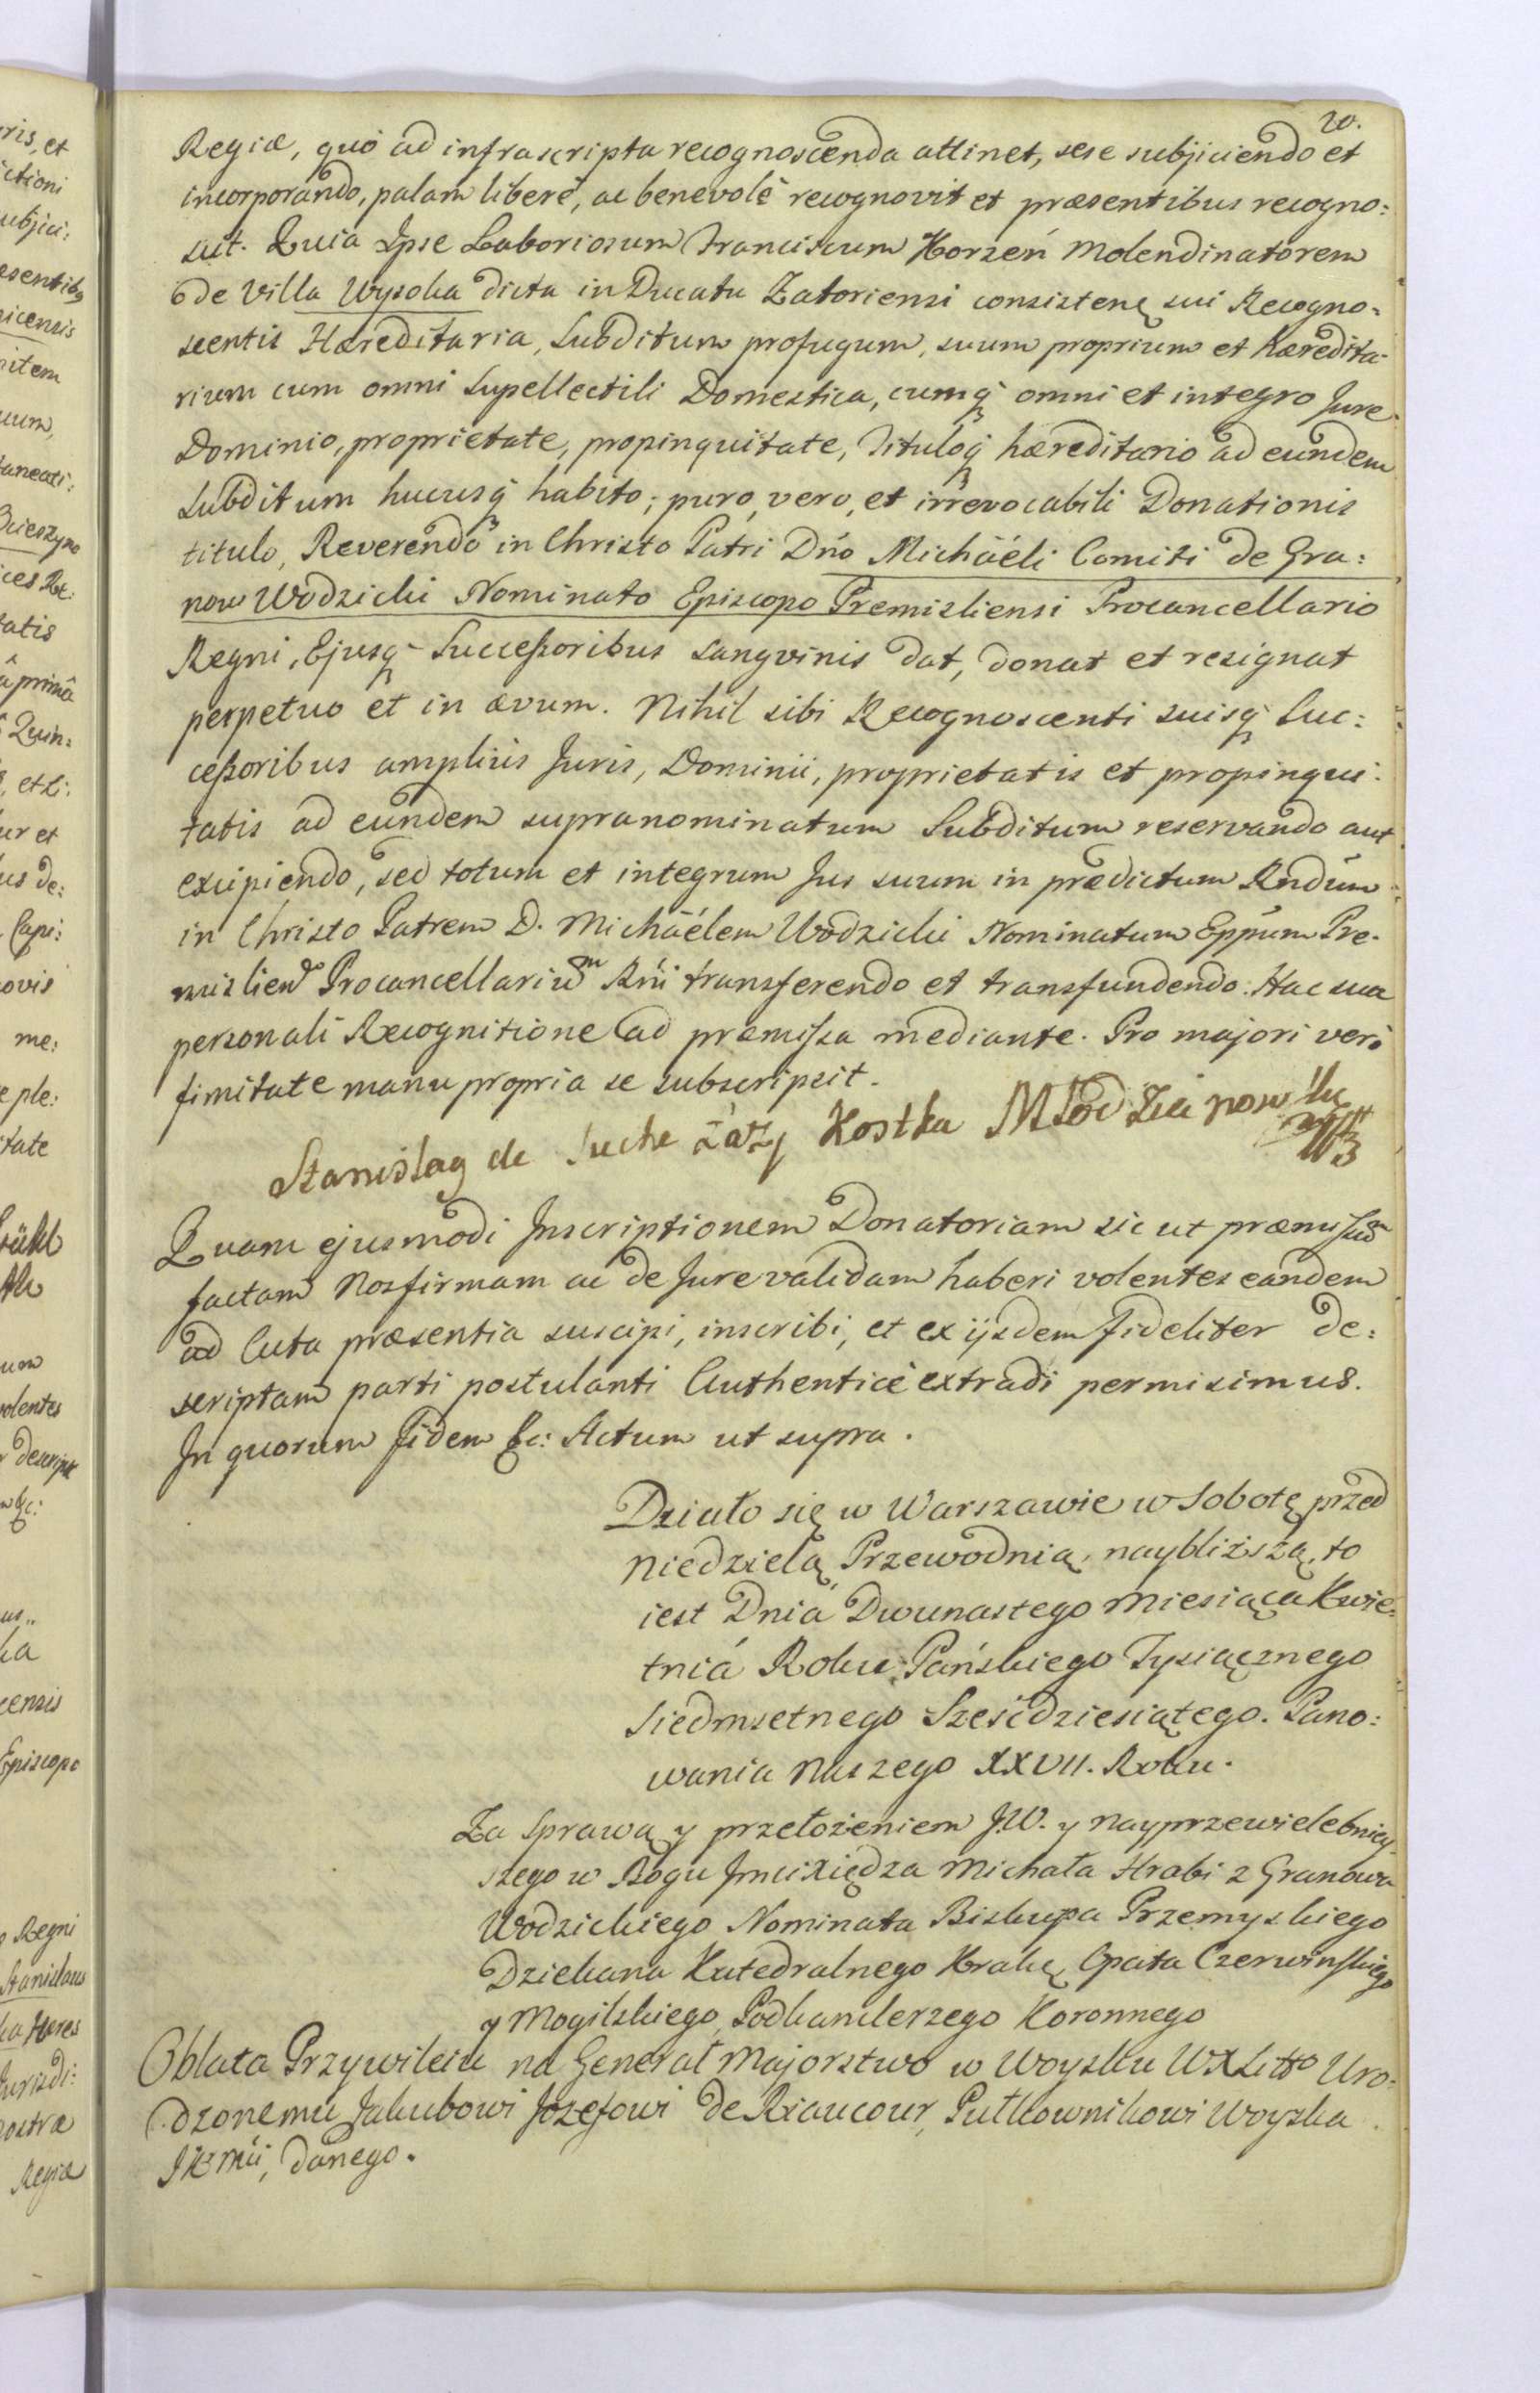 20.
Regiæ, quò ad infrascripta recognoscenda attinet, sese subjiciendo et
incorporando, palam liberè, ac benevolè recognovit et præsentibus recogno:
scit. Quia Ipse Laboriosum Franciscum Korzeń Molendinatorem
de Villa Wysoka dicta in Ducatu Zatoriensi consisten. sui Recogno:
scentis Hæreditaria, Subditum profugum, suum proprium et hæredita:
rium cum omni Supellectili Domestica, cumq omni et integro Jure
Dominio, proprietate, propinquitate, Tituloq hæreditario ad eundem
Subditum hucusq habito; puro, vero, et irrevocabili Donationis
titulo, Reverendo in Christo Patri Dno Michaeli Comiti de Gra:
now Wodzicki Nominato Episcopo Premisliensi Procancellario
Regni, Ejusq Succeßoribus Sangvinis dat, donat et resignat
perpetuo et in ævum. Nihil sibi Recognoscenti suisq Suc:
ceßoribus ampliùs Juris, Dominii, proprietatis et propinqui:
tatis ad eundem supranominatum Subditum reservando aut
excipiendo, sed totum et integrum Jus suum in prædictum Rndum
in Christo Patrem D. Michaëlem Wodzicki Nominatum Eppum Pre:
mislien Procancellariũm Rni transferendo et transfundendo. Hac sua
personali Recognitione ad præmissa mediante. Pro majori verò
firmitate manu propria se subscripsit.
Stanislag de Suche Łazy Kostka Młodzianowsky
Quam ejusmodi Inscriptionem Donatoriam sic ut præmissũ
factam Nos firmam ac de Jure validam haberi volentes eandem
ad Acta præsentia suscipi, inscribi, et ex ijsdem fideliter de:
scriptam parti postulanti Authenticè extradi permisimus.
In quorum fidem &c: Actum ut supra.
Działo się w Warszawie w Sobotę przed
Niedzielą Przewodnią, naybliższą, to
iest Dnia Dwunastego Miesiąca Kwie:
tnia Roku Pańskiego Tysiącznego
Siedmsetnego Sześćdziesiątego. Pano:
wania Naszego XXVII. Roku.
Za Sprawą y przełożeniem J.W. y Nayprzewielebniey:
szego w Bogu Jmcixiędza Michała Hrabi z Granowa
Wodzickiego Nominata Biskupa Przemyskiego
Dziekana Katedralnego Krakę Opata Czerwinskiego
y Mogilskiego, Podkanclerzego Koronnego
Oblata Przywileiu na Generał Majorstwo w Woysku WXLitto Uro:
dzonemu Jakubowi Jozefowi de Riaucour, Pułkownikowi Woyska
JKMći, danego.